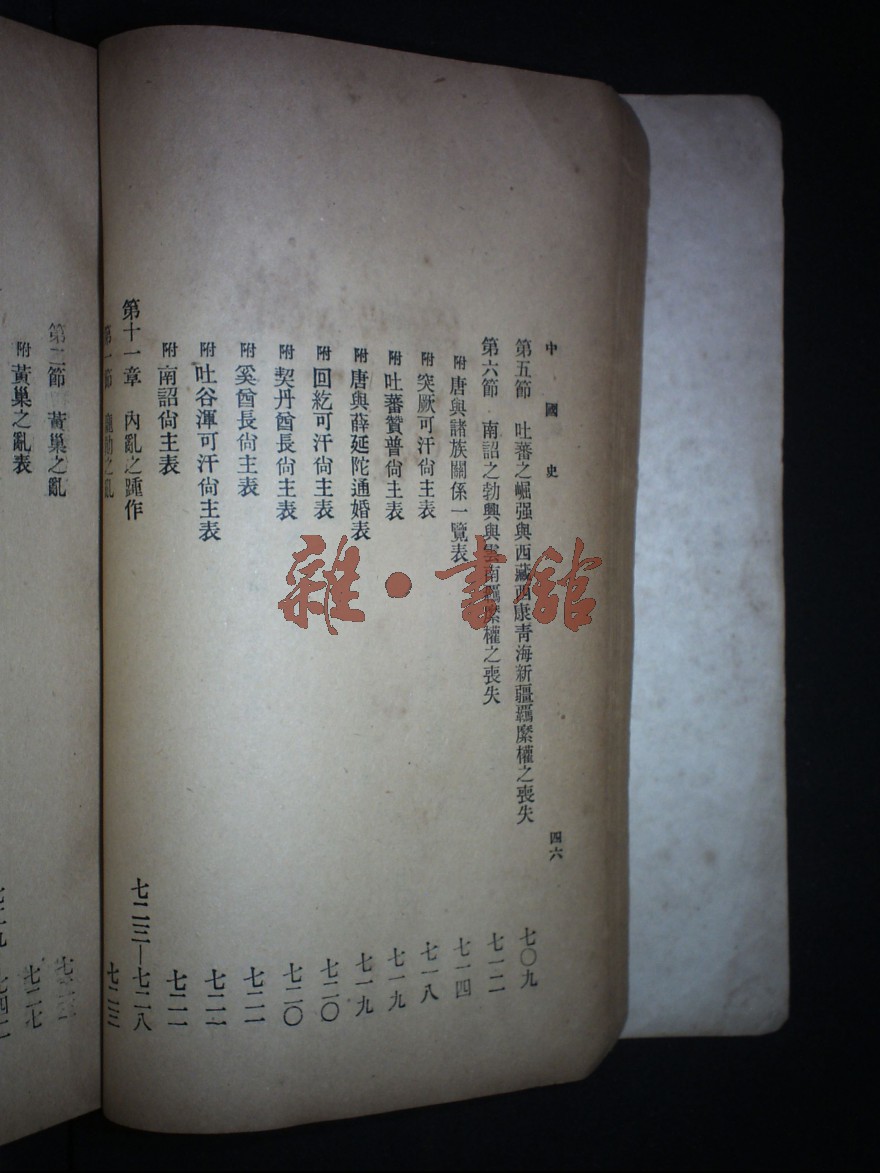 中國史 四六
第五節 吐蕃之崛强與西藏西康靑海新疆羈縻權之喪失 七〇九
第六節 南詔之勃興與雲南羈縻權之喪失 七一二
附 唐與諸族關係一覽表 七一四
附 突厥可汗尙主表 七一八
附 吐蕃贊普尙主表 七一九
附 唐與薛延陀通婚表 七一九
附 回紇可汗尙主表 七二〇
附 契丹酋長尙主表 七二〇
附 奚酋長尙主表 七二一
附 吐谷渾可汗尙主表
附 南詔尙主表
第十一章 內亂之踵作 七二三—七二八
第一節 龐勛之亂 七二三
第二節 黃巢之亂
附 黃巢之亂表 七二七
雜·書館